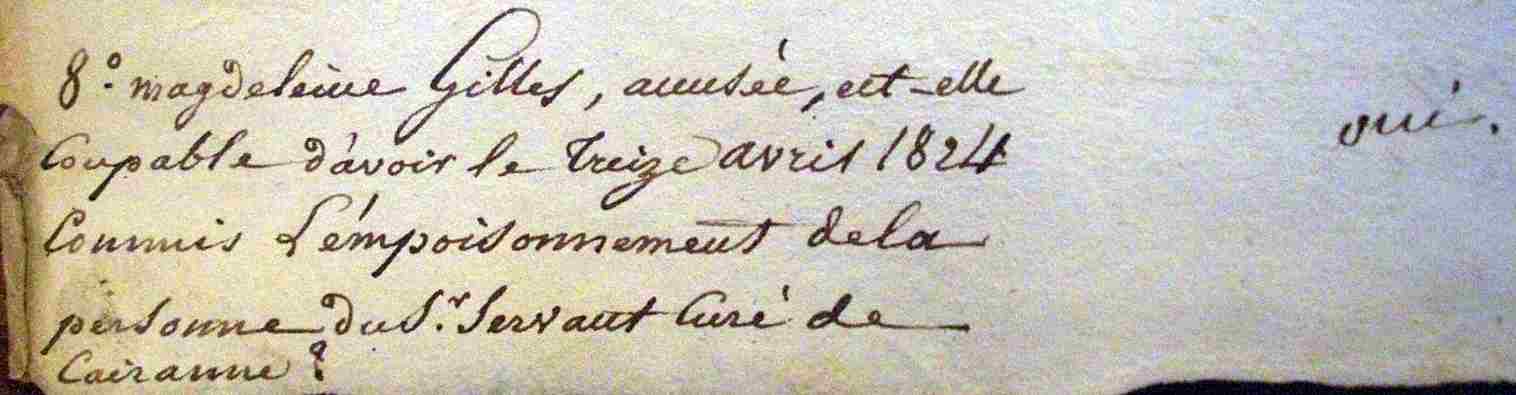 8.° magdeleine Gilles, accusée, est-elle
Coupable d'avoir le treize avril 1824
Commis L'émpoisonnement de la
personne du S.r Servant Curé de
Cairanne ?
oui.